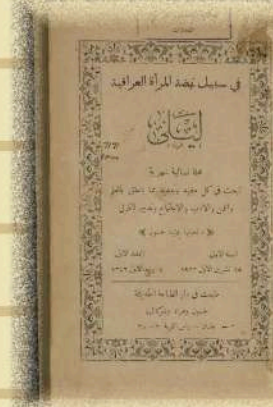 في سبيل نهضة المرأة العراقية
ليلى
مجلة نسائية شهرية
تبحث في كل مفيد وجديد مما يتعلق بالعلم
والفن والادب والاجتماع وتدبير المنزل
السنة الاولى العدد الاول
١٥ تشرين الاول ١٩٢٣ ٦ ربيع الاول ١٣٤٢
طبعت في دار الطباعة الحديثة
بغداد